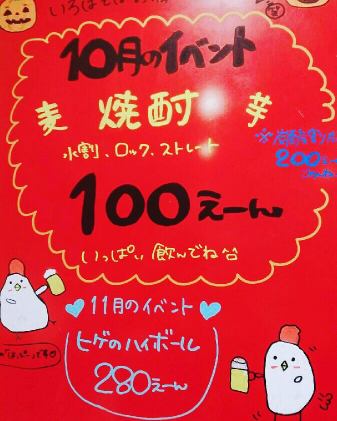 10月のイベント
麦 焼酎 芋
水割、ロック、ストレート
※炭酸割りは
200
100えーん
いっぱい飲んでね
11月のイベント
ヒゲのハイボール
280えーん